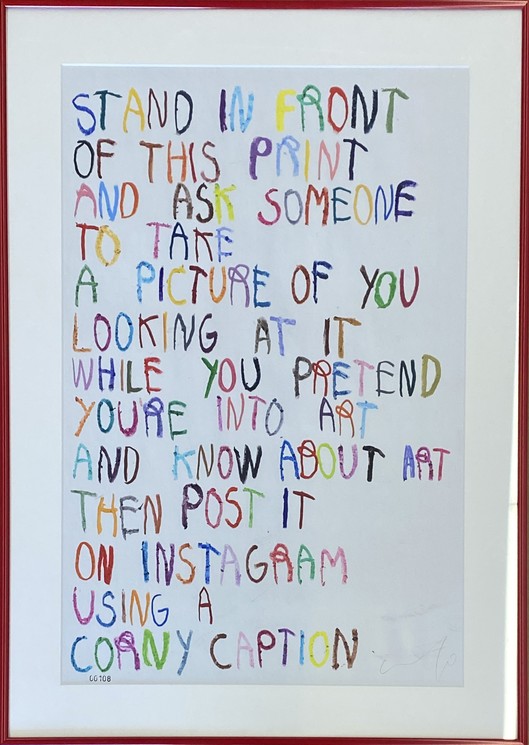 STAND IN FRONT
OF THIS PRINT
AND ASK SOMEONE
TO TAKE
A PICTURE OF YOU
LOOKING AT IT
WHILE YOU PRETEND
YOURE INTO ART
AND KNOW ABOUT ART
THEN POST IT
ON INSTAGRAM
USING A
CORNY CAPTION
00108